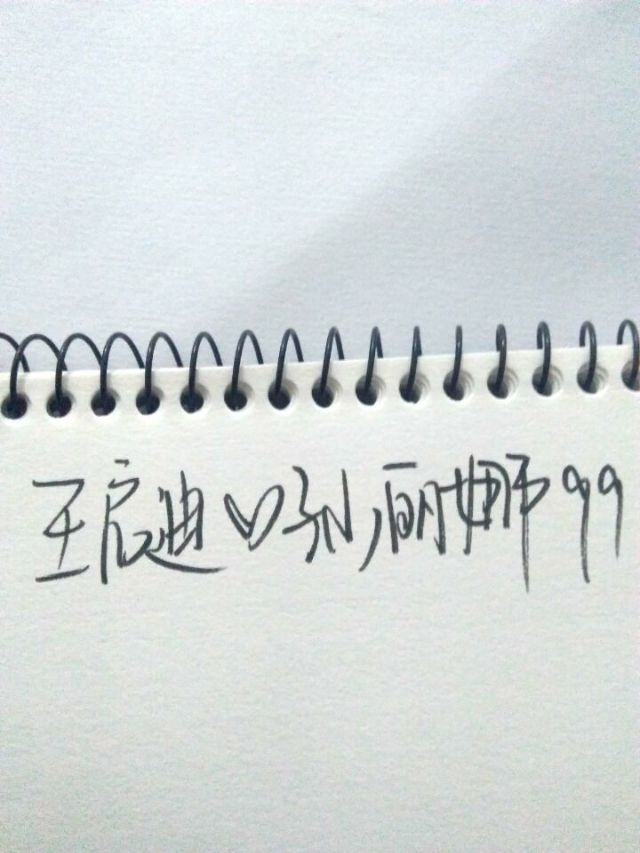 王启迪♡孙丽娜99